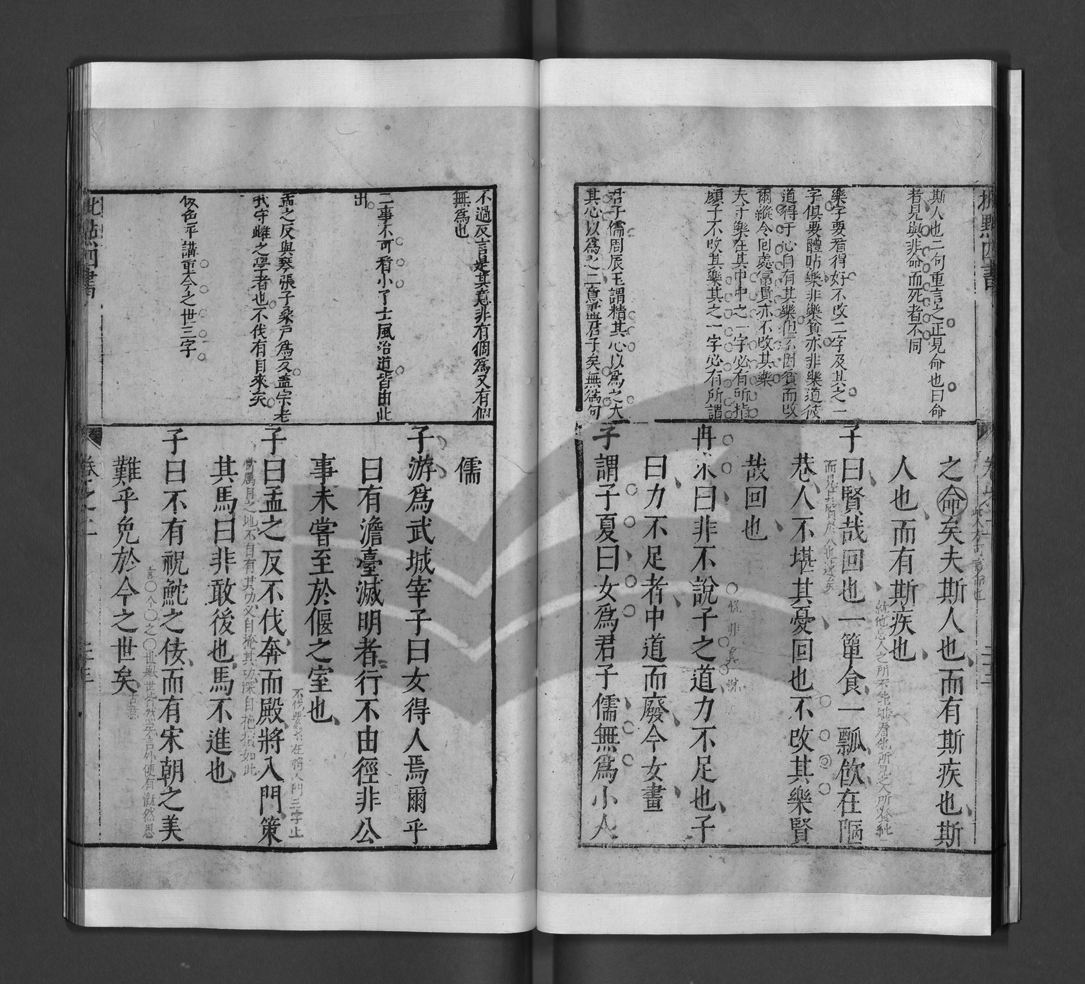 斯人也二句重言之正見命也曰命
者見與非命而死者不同
樂字要看得好不改二字及其之二
字俱要體貼樂非樂貧亦非樂道彼
道得于心自有其樂他不因貧而改
爾縱令回處富貴亦不改其樂
夫子樂在其中中之一字必有所指
顏子不改其樂其之一字必有所謂
君子儒周辰王謂精其心以為之大
其心以為之二意盡君子矣無為句
之命矣夫斯人也而有斯疾也斯
人也而有斯疾也
子曰賢哉回也一簞食一瓢飲在陋
巷人不堪其憂回也不改其樂賢
哉回也
冉求曰非不說子之道力不足也子
曰力不足者中道而廢今女畫
子謂子夏曰女為君子儒無為小人
不過反言足其意非有個為又有個
無為也
二事不可看小了士風治道皆由此
出
孟之反與琴張子桑戶為友盖宗老
氏守雌之學者也不伐有自來矣
佞色平講重今之世三字
儒
子游為武城宰子曰女得人焉爾乎
曰有澹臺滅明者行不由徑非公
事未嘗至於偃之室也
子曰孟之反不伐奔而殿將入門策
不伐緊在將入門三字上
其馬曰非敢後也馬不進也
子曰不有祝鮀之佞而有宋朝之美
難乎免於今之世矣
批點四書
卷之二